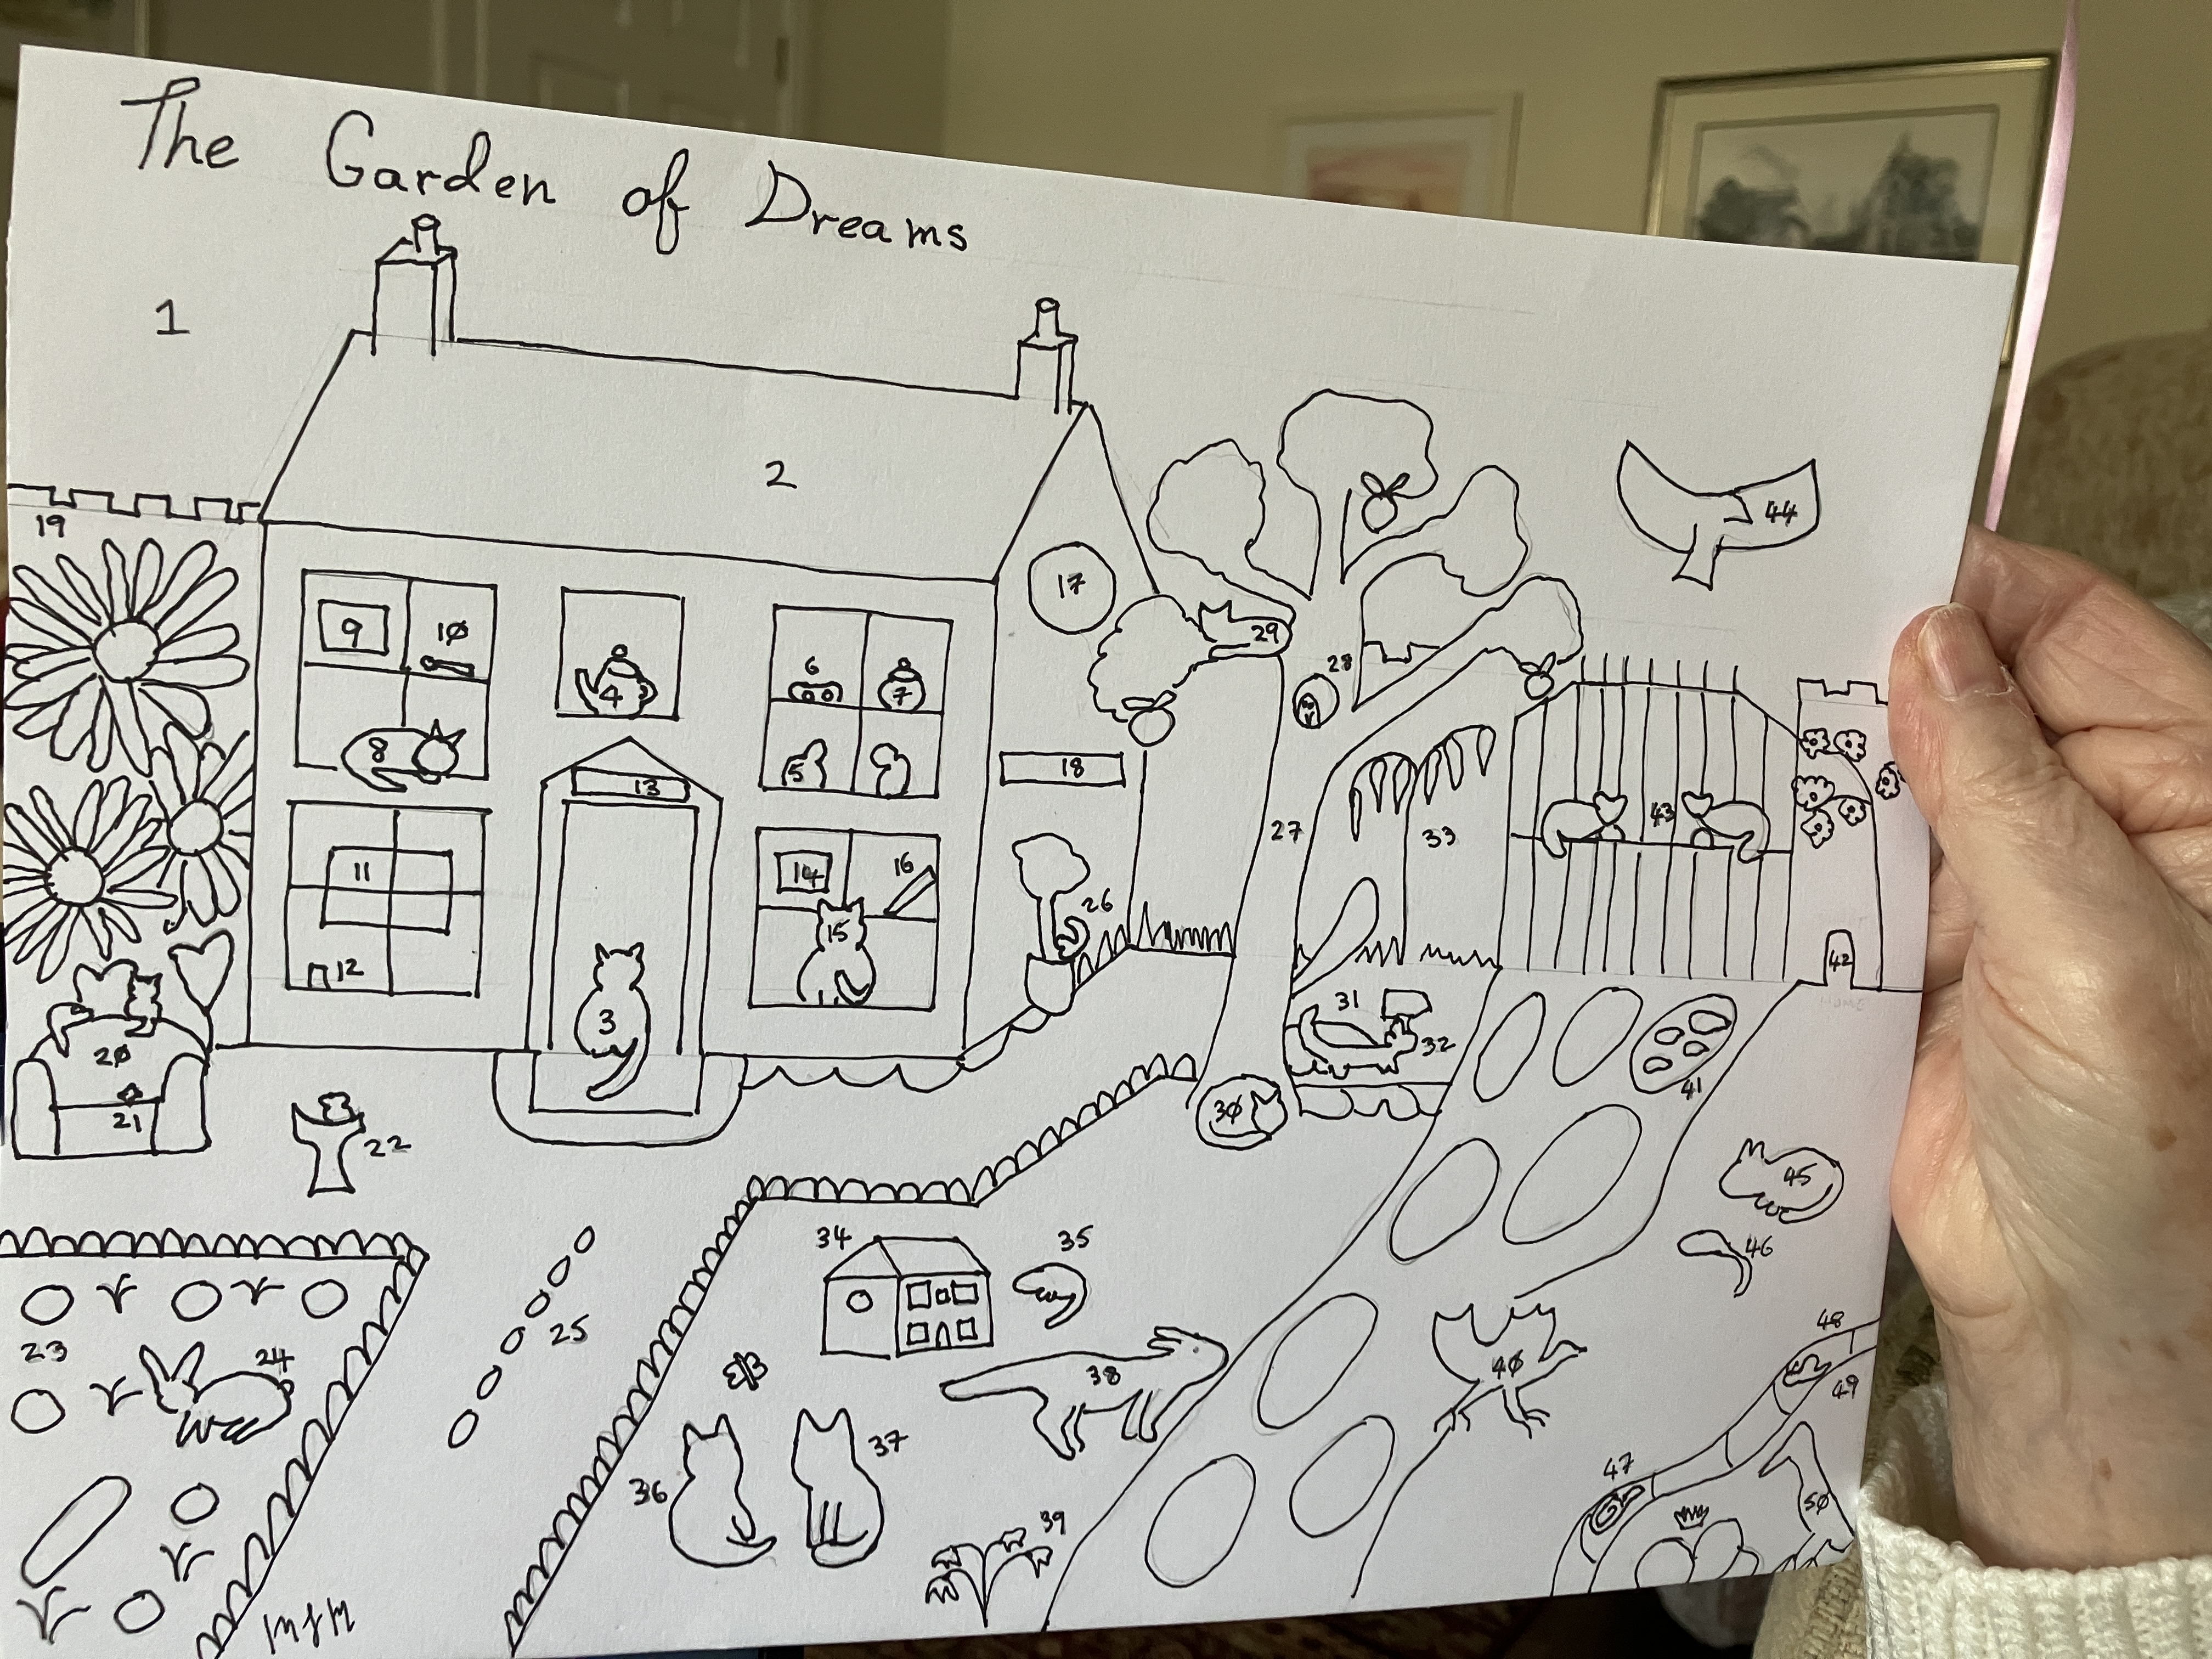 The Garden of Dreams
1
2
19
17
9
10
4
6
7
8
5
13
18
11
12
14
16
15
3
26
20
21
22
29
28
27
33
43
44
42
31
32
30
41
45
46
23
24
25
34
35
36
37
38
39
40
47
48
49
50